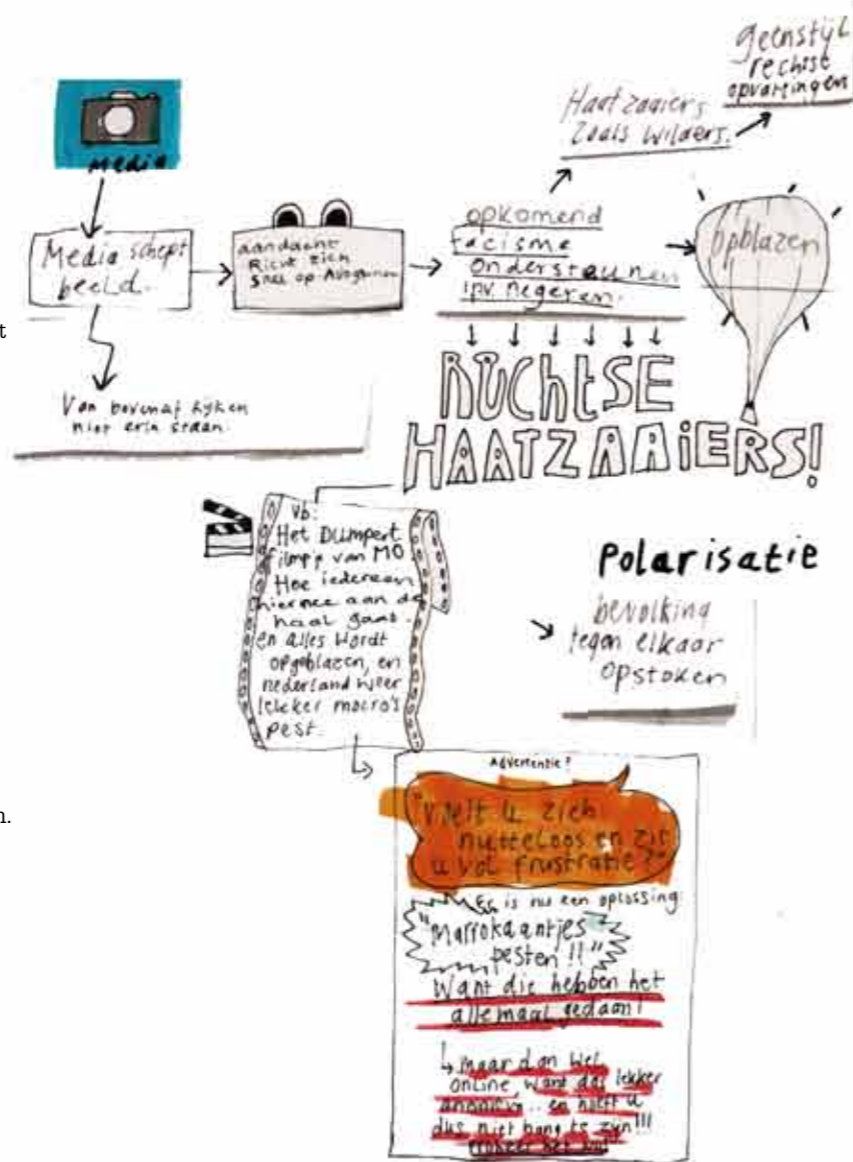 Media
Media schept
beeld.
Van bovenaf kijken
niet erin staan.
aandacht
Richt zich
snel op
opkomend
racisme
ondersteunen
ipv. negeren.
Haatzaaiers
Zoals Wilders.
geenstijl
rechtse
opvattingen
opblazen
RECHTSE
HAATZAAIERS!
vb:
Het Dumpert
filmpje van MO
Hoe iedereen
hiermee aan de
haal gaat.
en alles wordt
opgeblazen, en
nederland weer
lekker mocro's
pest.
Polarisatie
bevolking
tegen elkaar
opstoken
Advertentie!
"Voelt u zich
nutteloos en zit
u vol frustratie?"
Er is nu een oplossing:
"Marrokaantjes
pesten!!"
Want die hebben het
allemaal gedaan!
maar dan wel
online, want das lekker
anoniem.. en hoeft u
dus niet bang te zijn!!!
t
n.